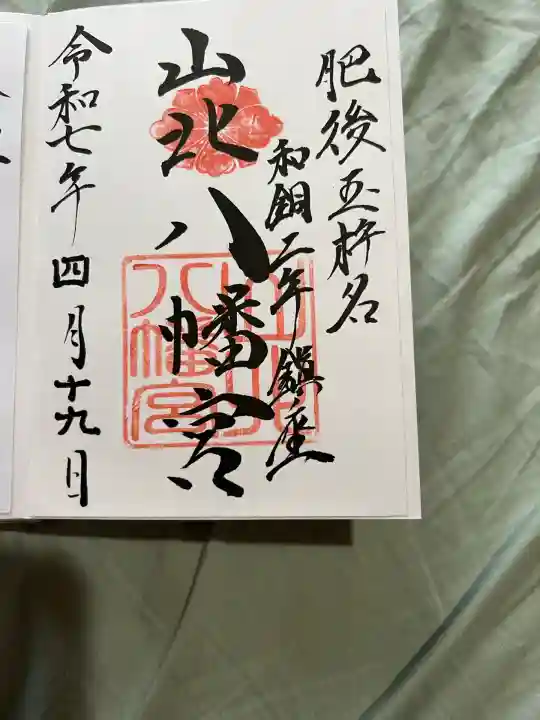 肥後玉杵名
和銅二年鎮座
山北八幡宮
山北
八幡宮
令和七年四月十九日